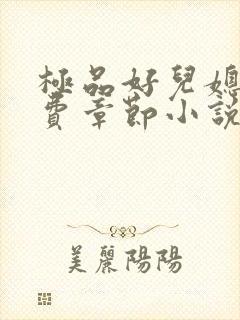 極品好兒媳
費章節小說
美麗陽陽